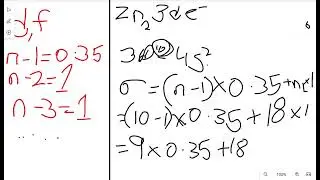 d,f
n-1=0.35
n-2=1
n-3=1
.....
Zn, 3d e-
3d¹⁰ 4s²
σ = (n-1)×0.35+n×1
=(10-1)×0.35+18×1
=9×0.35+18
100%